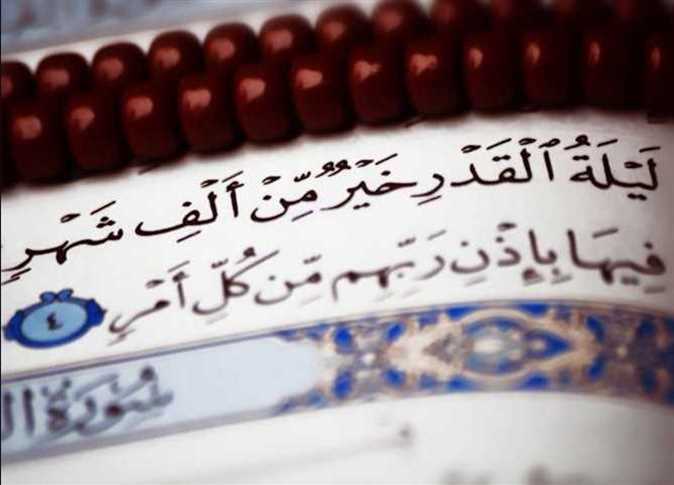 لَيْلَةُ ٱلْقَدْرِ خَيْرٌ مِّنْ أَلْفِ شَهْرٍ
فِيهَا بِإِذْنِ رَبِّهِم مِّن كُلِّ أَمْرٍ ٤
سُورَةُ ال